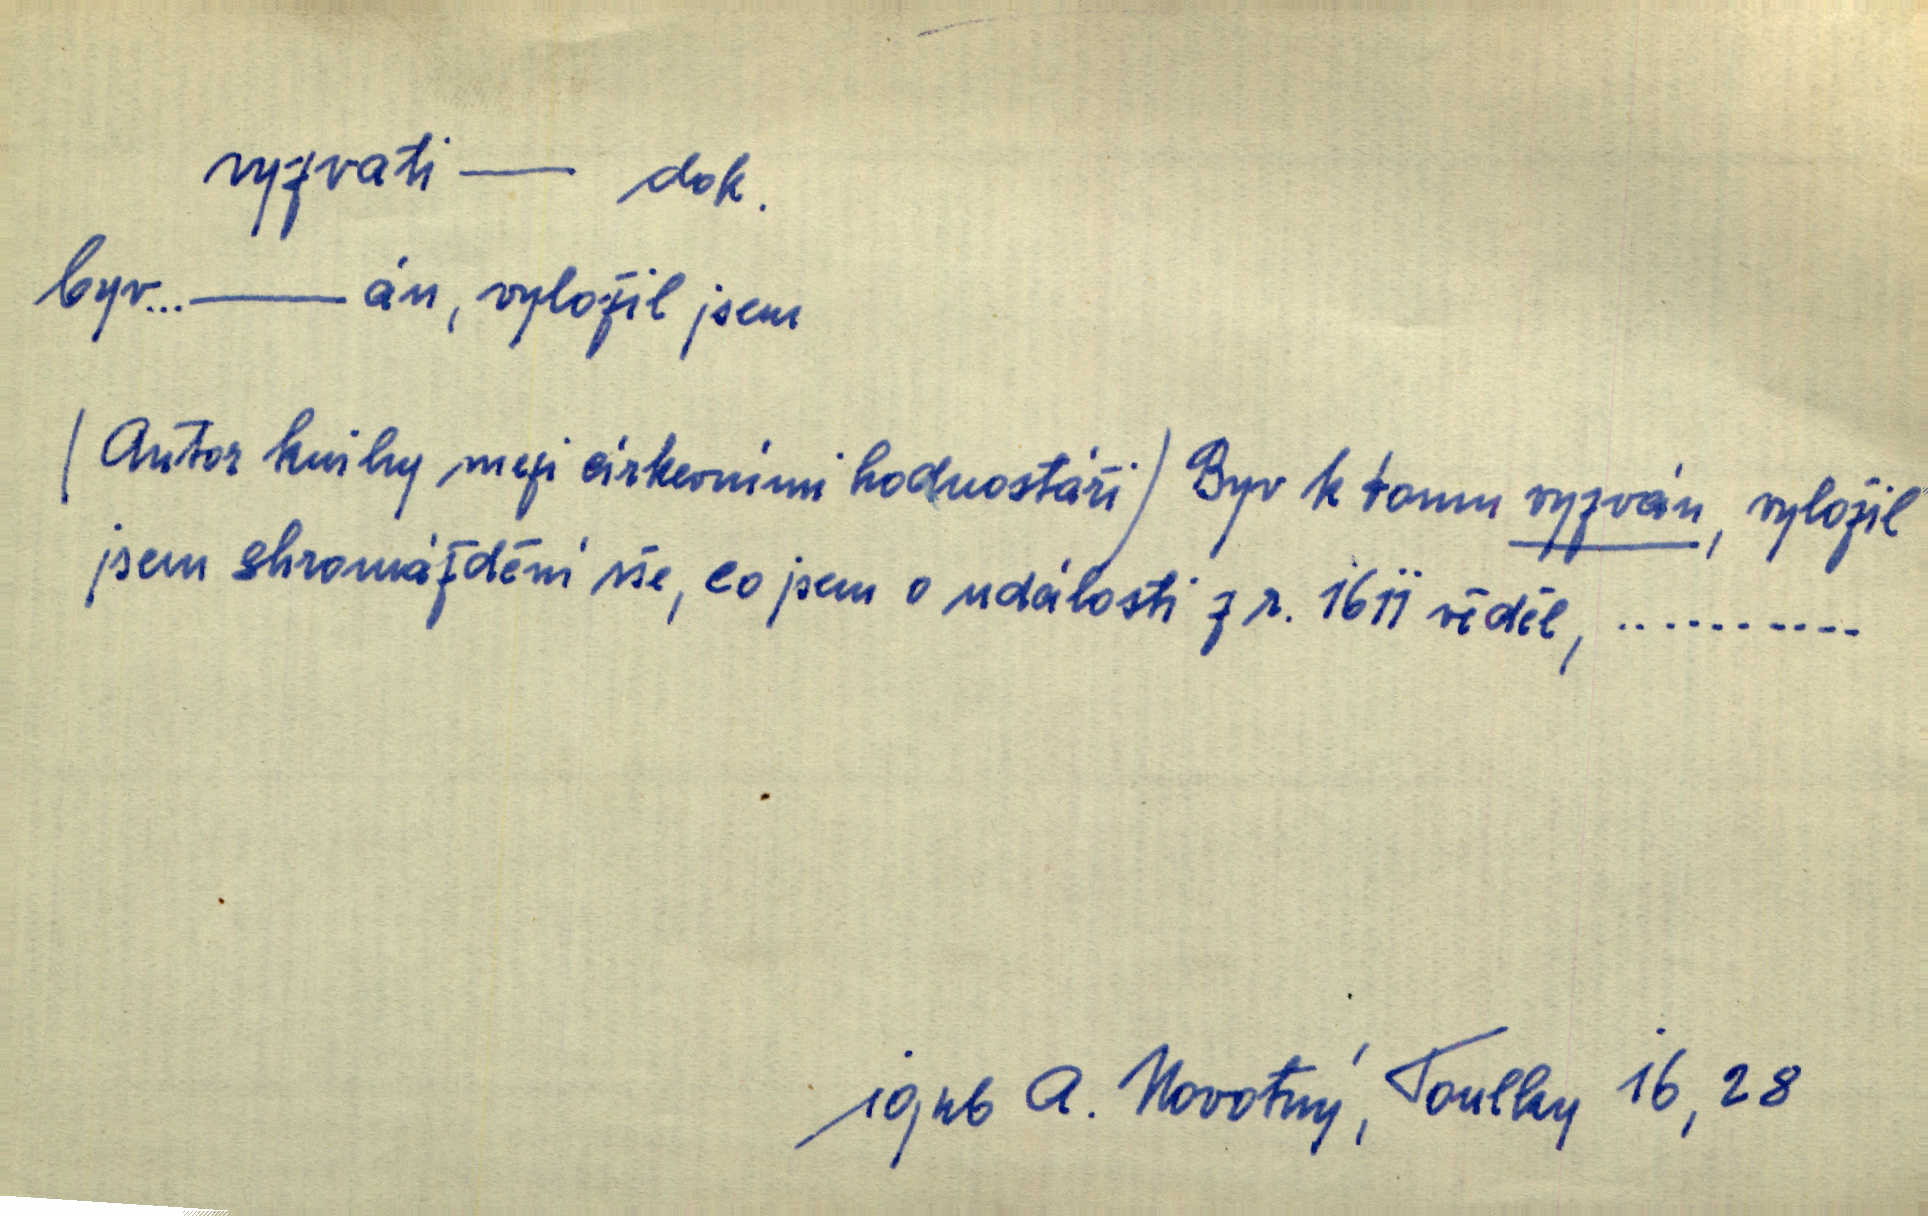 vyzvati — dok.
byv...——án, vyložil jsem
(Autor knihy mezi církevními hodnostáři) Byv k tomu vyzván, vyložil
jsem shromáždění vše, co jsem o události z r. 1611 věděl, ...........
A. Novotný, Toulky 16, 28